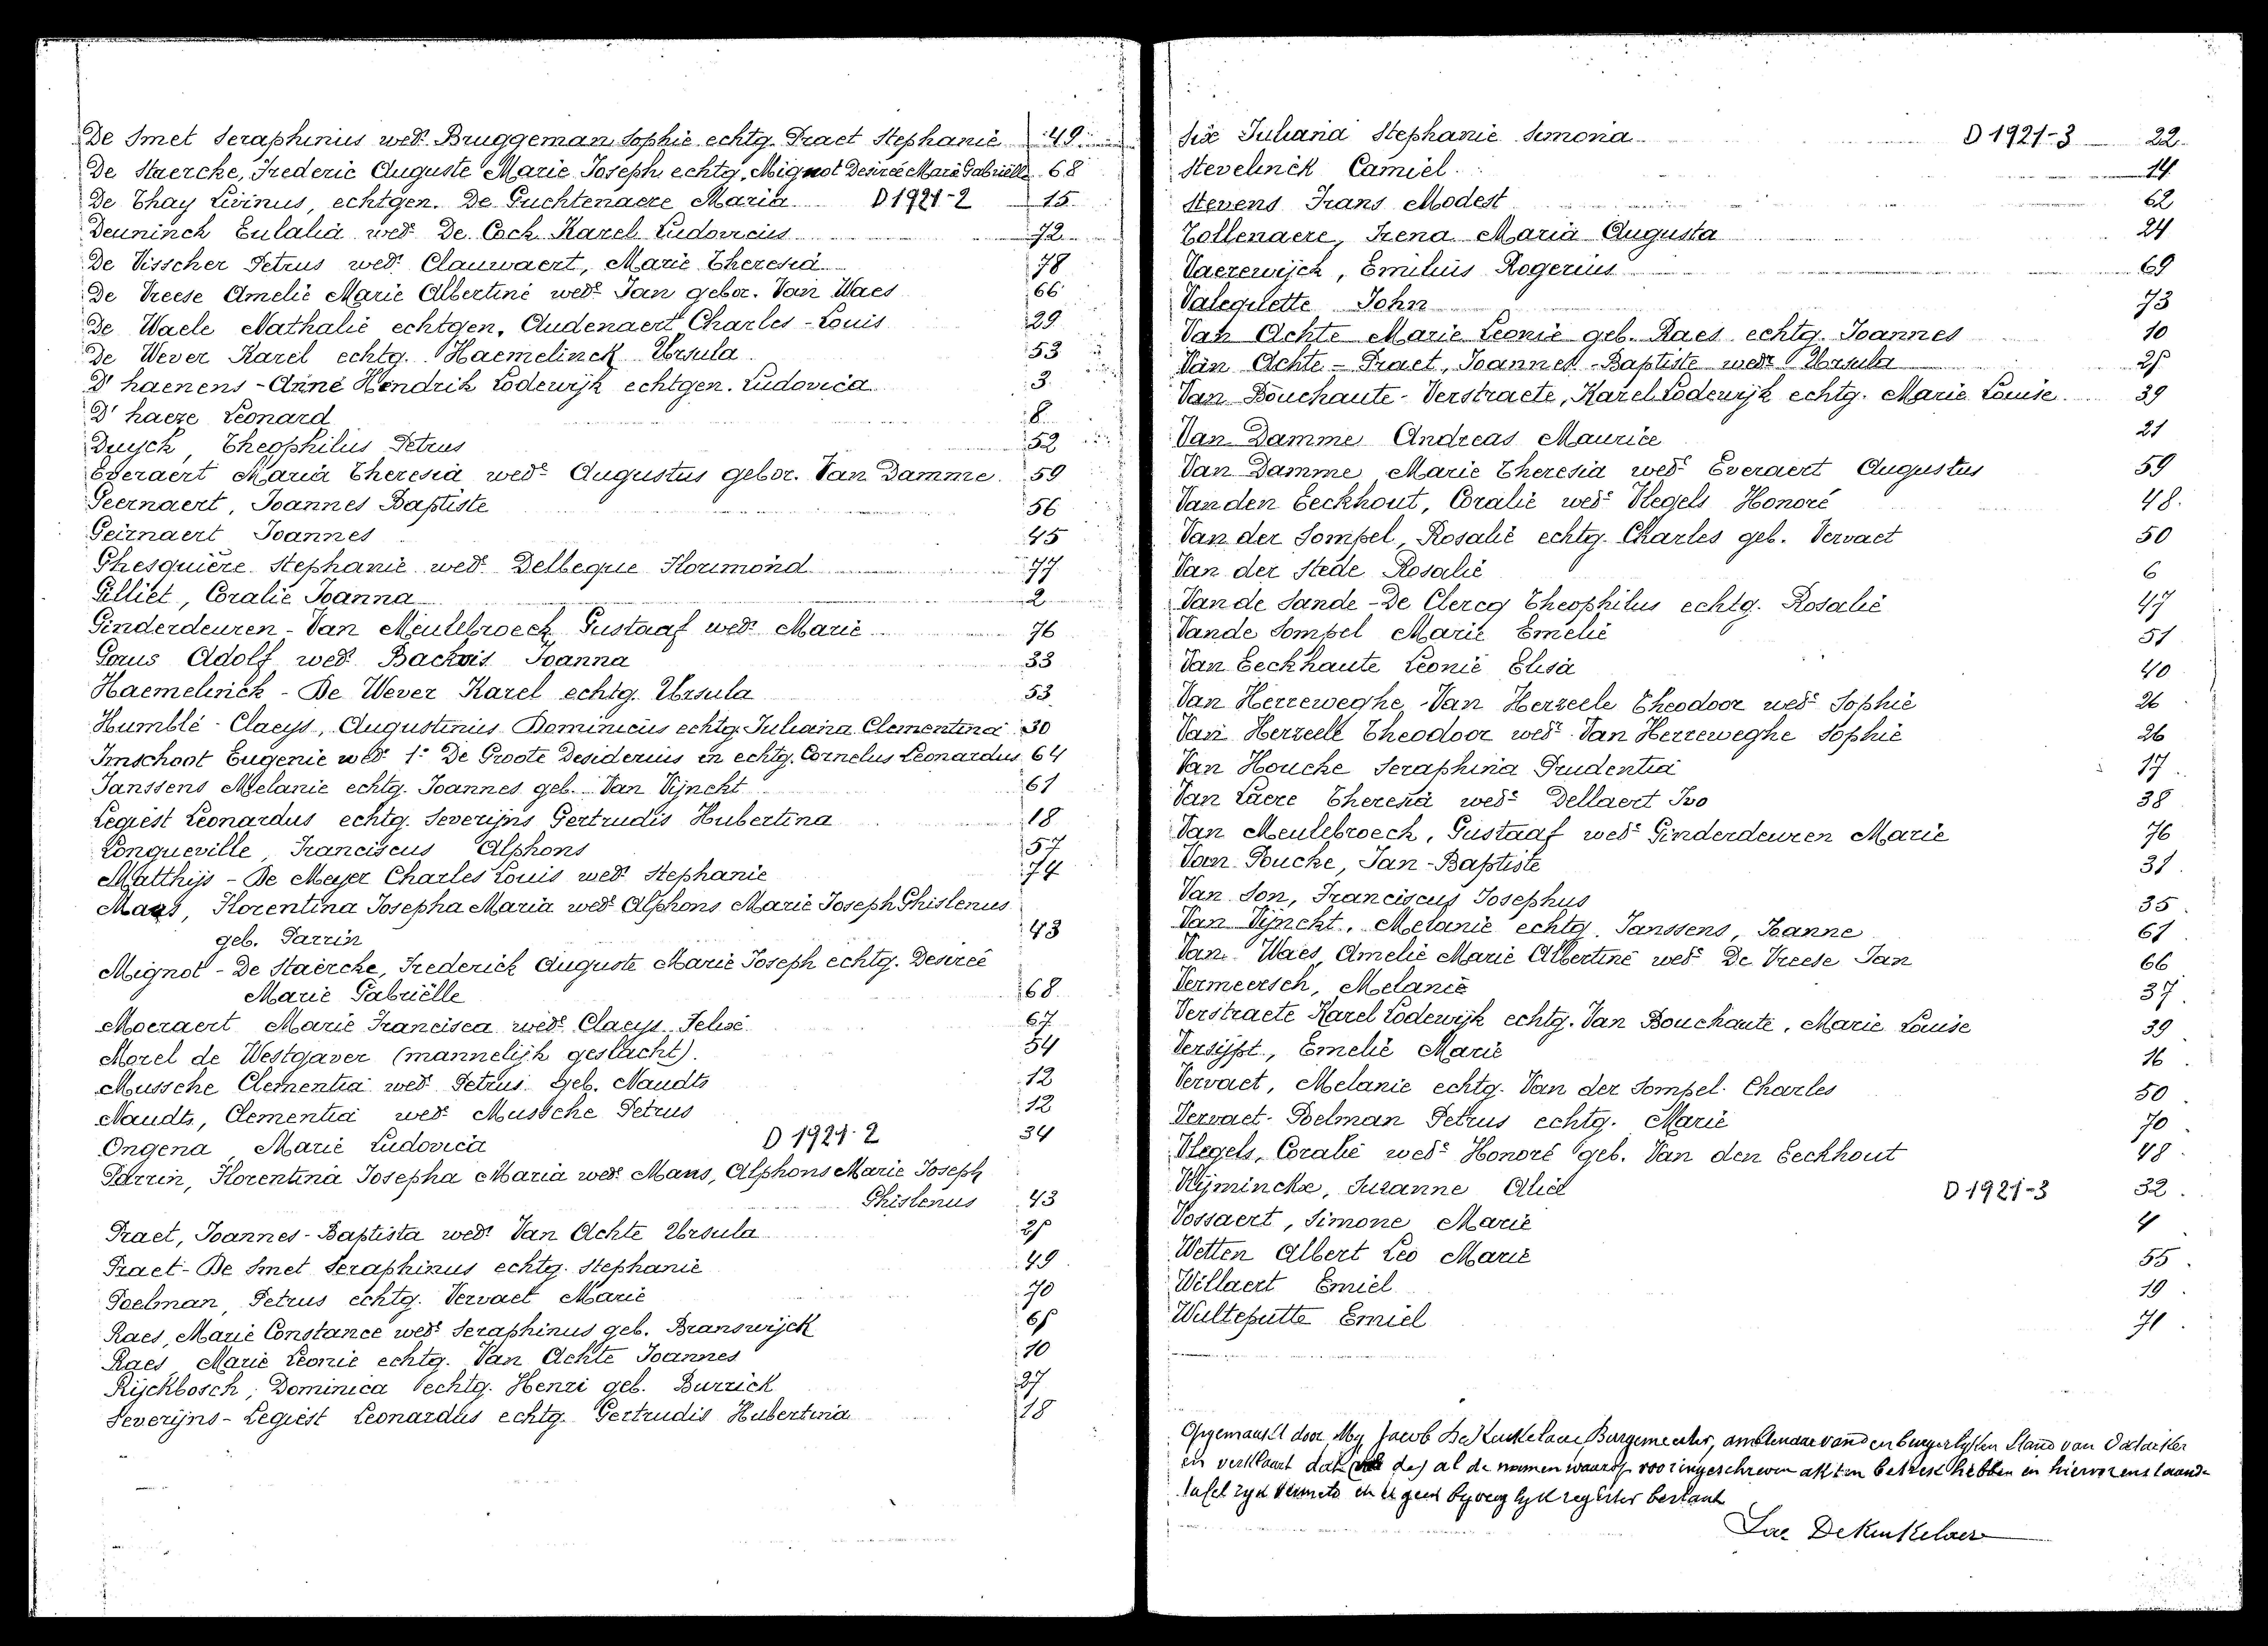 De Smet Seraphinus wed.r Bruggeman Sophie echtg. Praet Stephanie 49
De Staercke, Frederic Auguste Marie Joseph echtg. Mignot Desirée Marie Gabriëlle 68
De Thay Livinus, echtgen. De Guchtenaere Maria D 1921-2 15
Deuninck Eulalia wed.e De Cock Karel Ludovicus 72
De Visscher Petrus wed.r Clauwaert, Marie Theresia 78
De Vreese Amelie Marie Albertine wed.e Jan gebor. Van Waes 66
De Waele Nathalie echtgen. Audenaert Charles-Louis 29
De Wever Karel echtg. Haemelinck Ursula 53
D'haenens-Anné Hendrik Lodewijk echtgen. Ludovica 3
D'haeze Leonard 8
Duyck, Theophilus Petrus 52
Everaert Maria Theresia wed.e Augustus gebor. Van Damme 59
Geernaert, Joannes Baptiste 56
Geirnaert Joannes 45
Ghesquière Stephanie wed.e Delbeque Florimond 77
Gilliet, Coralie Joanna 2
Ginderdeuren-Van Meulebroeck Gustaaf wed.r Marie 76
Gorus Adolf wed.r Backvis Joanna 33
Haemelinck-De Wever Karel echtg. Ursula 53
Humblé-Claeys, Augustinus Dominicus echtg. Juliana Clementina 30
Imschoot Eugenie wed.e 1.e De Groote Desiderius en echtg. Cornelus Leonardus 64
Janssens Melanie echtg. Joannes geb. Van Vijnckt 61
Legiest Leonardus echtg. Severijns Gertrudis Hubertina 18
Longueville, Franciscus Alphons 57
Matthijs-De Meyer Charles Louis wed.r Stephanie 74
Maus, Florentina Josepha Maria wed.e Alphons Marie Joseph Ghislenus
geb. Parrin 43
Mignot-De Staercke, Frederick Auguste Marie Joseph echtg. Desireé
Marie Gabriëlle 68
Moeraert Marie Francisca wed.e Claeys Felix 67
Morel de Westgaver (mannelijk geslacht). 54
Mussche Clementia wed.e Petrus geb. Naudts 12
Naudts, Clementia wed.e Mussche Petrus 12
Ongena, Marie Ludovica D 1921-2 34
Parrin, Florentina Josepha Maria wed.e Maus, Alphons Marie Joseph
Ghislenus 43
Praet, Joannes-Baptista wed.r Van Achte Ursula 25
Praet-De Smet Seraphinus echtg. Stephanie 49
Poelman, Petrus echtg. Vervaet Marie 70
Raes, Marie Constance wed.e Seraphinus geb. Branswijck 65
Raes, Marie Leonie echtg. Van Achte Joannes 10
Rijckbosch, Dominica echtg. Henri geb. Burrick 27
Severijns-Legiest Leonardus echtg. Gertrudis Hubertina 18
Six Juliana Stephanie Simona D 1921-3 22
Stevelinck Camiel 14
Stevens Frans Modest 62
Tollenaere, Irena Maria Augusta 24
Vaerewijck, Emilius Rogerius 69
Valequette John 73
Van Achte Marie Leonie geb. Raes echtg. Joannes 10
Van Achte-Praet, Joannes-Baptiste wed.r Ursula 25
Van Bouchaute-Verstraete, Karel Lodewijk echtg. Marie Louise 39
Van Damme Andreas Maurice 21
Van Damme Marie Theresia wed.e Everaert Augustus 59
Vanden Eeckhout, Coralie wed.e Vlegels Honoré 48
Van der Sompel, Rosalie echtg. Charles geb. Vervaet 50
Van der Stede Rosalie 6
Van de Sande-De Clercq Theophilus echtg. Rosalie 47
Vande Sompel Marie Emelie 51
Van Eeckhaute Leonie Elisa 40
Van Herreweghe-Van Herzeele Theodoor wed.r Sophie 26
Van Herzeele Theodoor wed.r Van Herreweghe Sophie 26
Van Houcke Seraphina Prudentia 17
Van Laere Theresia wed.e Dellaert Ivo 38
Van Meulebroeck, Gustaaf wed.r Ginderdeuren Marie 76
Van Poucke, Jan-Baptiste 31
Van Son, Franciscus Josephus 35
Van Vijnckt, Melanie echtg. Janssens, Joanne 61
Van Waes Amelie Marie Albertine wed.e De Vreese Jan 66
Vermeersch, Melanie 37
Verstraete Karel Lodewijk echtg. Van Bouchaute, Marie Louise 39
Versijpt, Emelie Marie 16
Vervaet, Melanie echtg. Van der Sompel Charles 50
Vervaet-Poelman Petrus echtg. Marie 70
Vlegels, Coralie wed.e Honoré geb. Van den Eeckhout 48
Vlijminckx, Suzanne Alice D 1921-3 32
Vossaert, Simone Marie 4
Wetten Albert Leo Marie 55
Willaert Emiel 19
Wulteputte Emiel 71
Opgemaakt door My Jacob De Keukelaere, Burgemeester, ambtenaar van den burgerlyken Stand van
en verklaart dat al de namen waarop akten betrek hebben in hiervorenstaande
tafel zyn vermeld en er geen byvoeglyk register bestaat
Jac DeKeukelaere